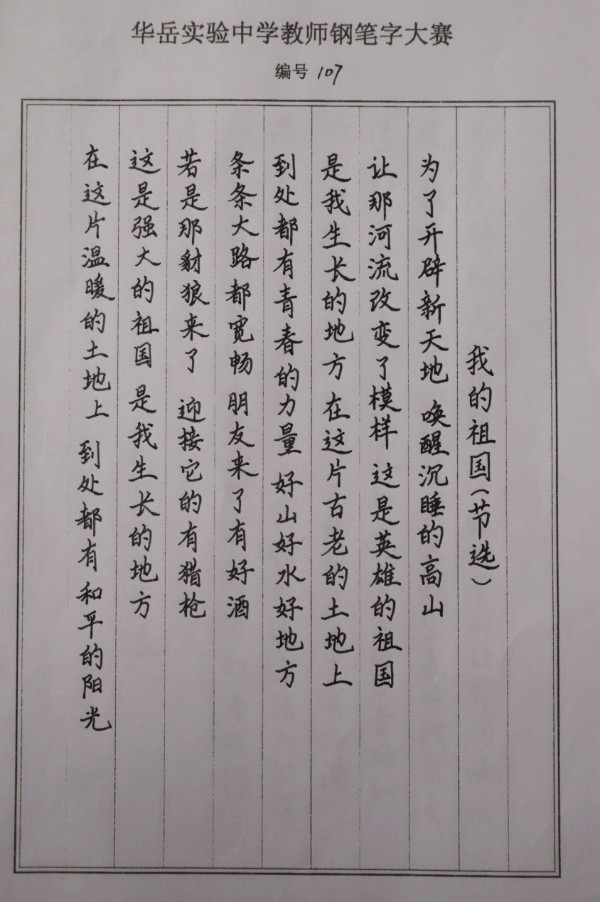 华岳实验中学教师钢笔字大赛
编号 107
我的祖国(节选)
为了开辟新天地 唤醒沉睡的高山
让那河流改变了模样 这是英雄的祖国
是我生长的地方 在这片古老的土地上
到处都有青春的力量 好山好水好地方
条条大路都宽畅 朋友来了有好酒
若是那豺狼来了 迎接它的有猎枪
这是强大的祖国 是我生长的地方
在这片温暖的土地上 到处都有和平的阳光